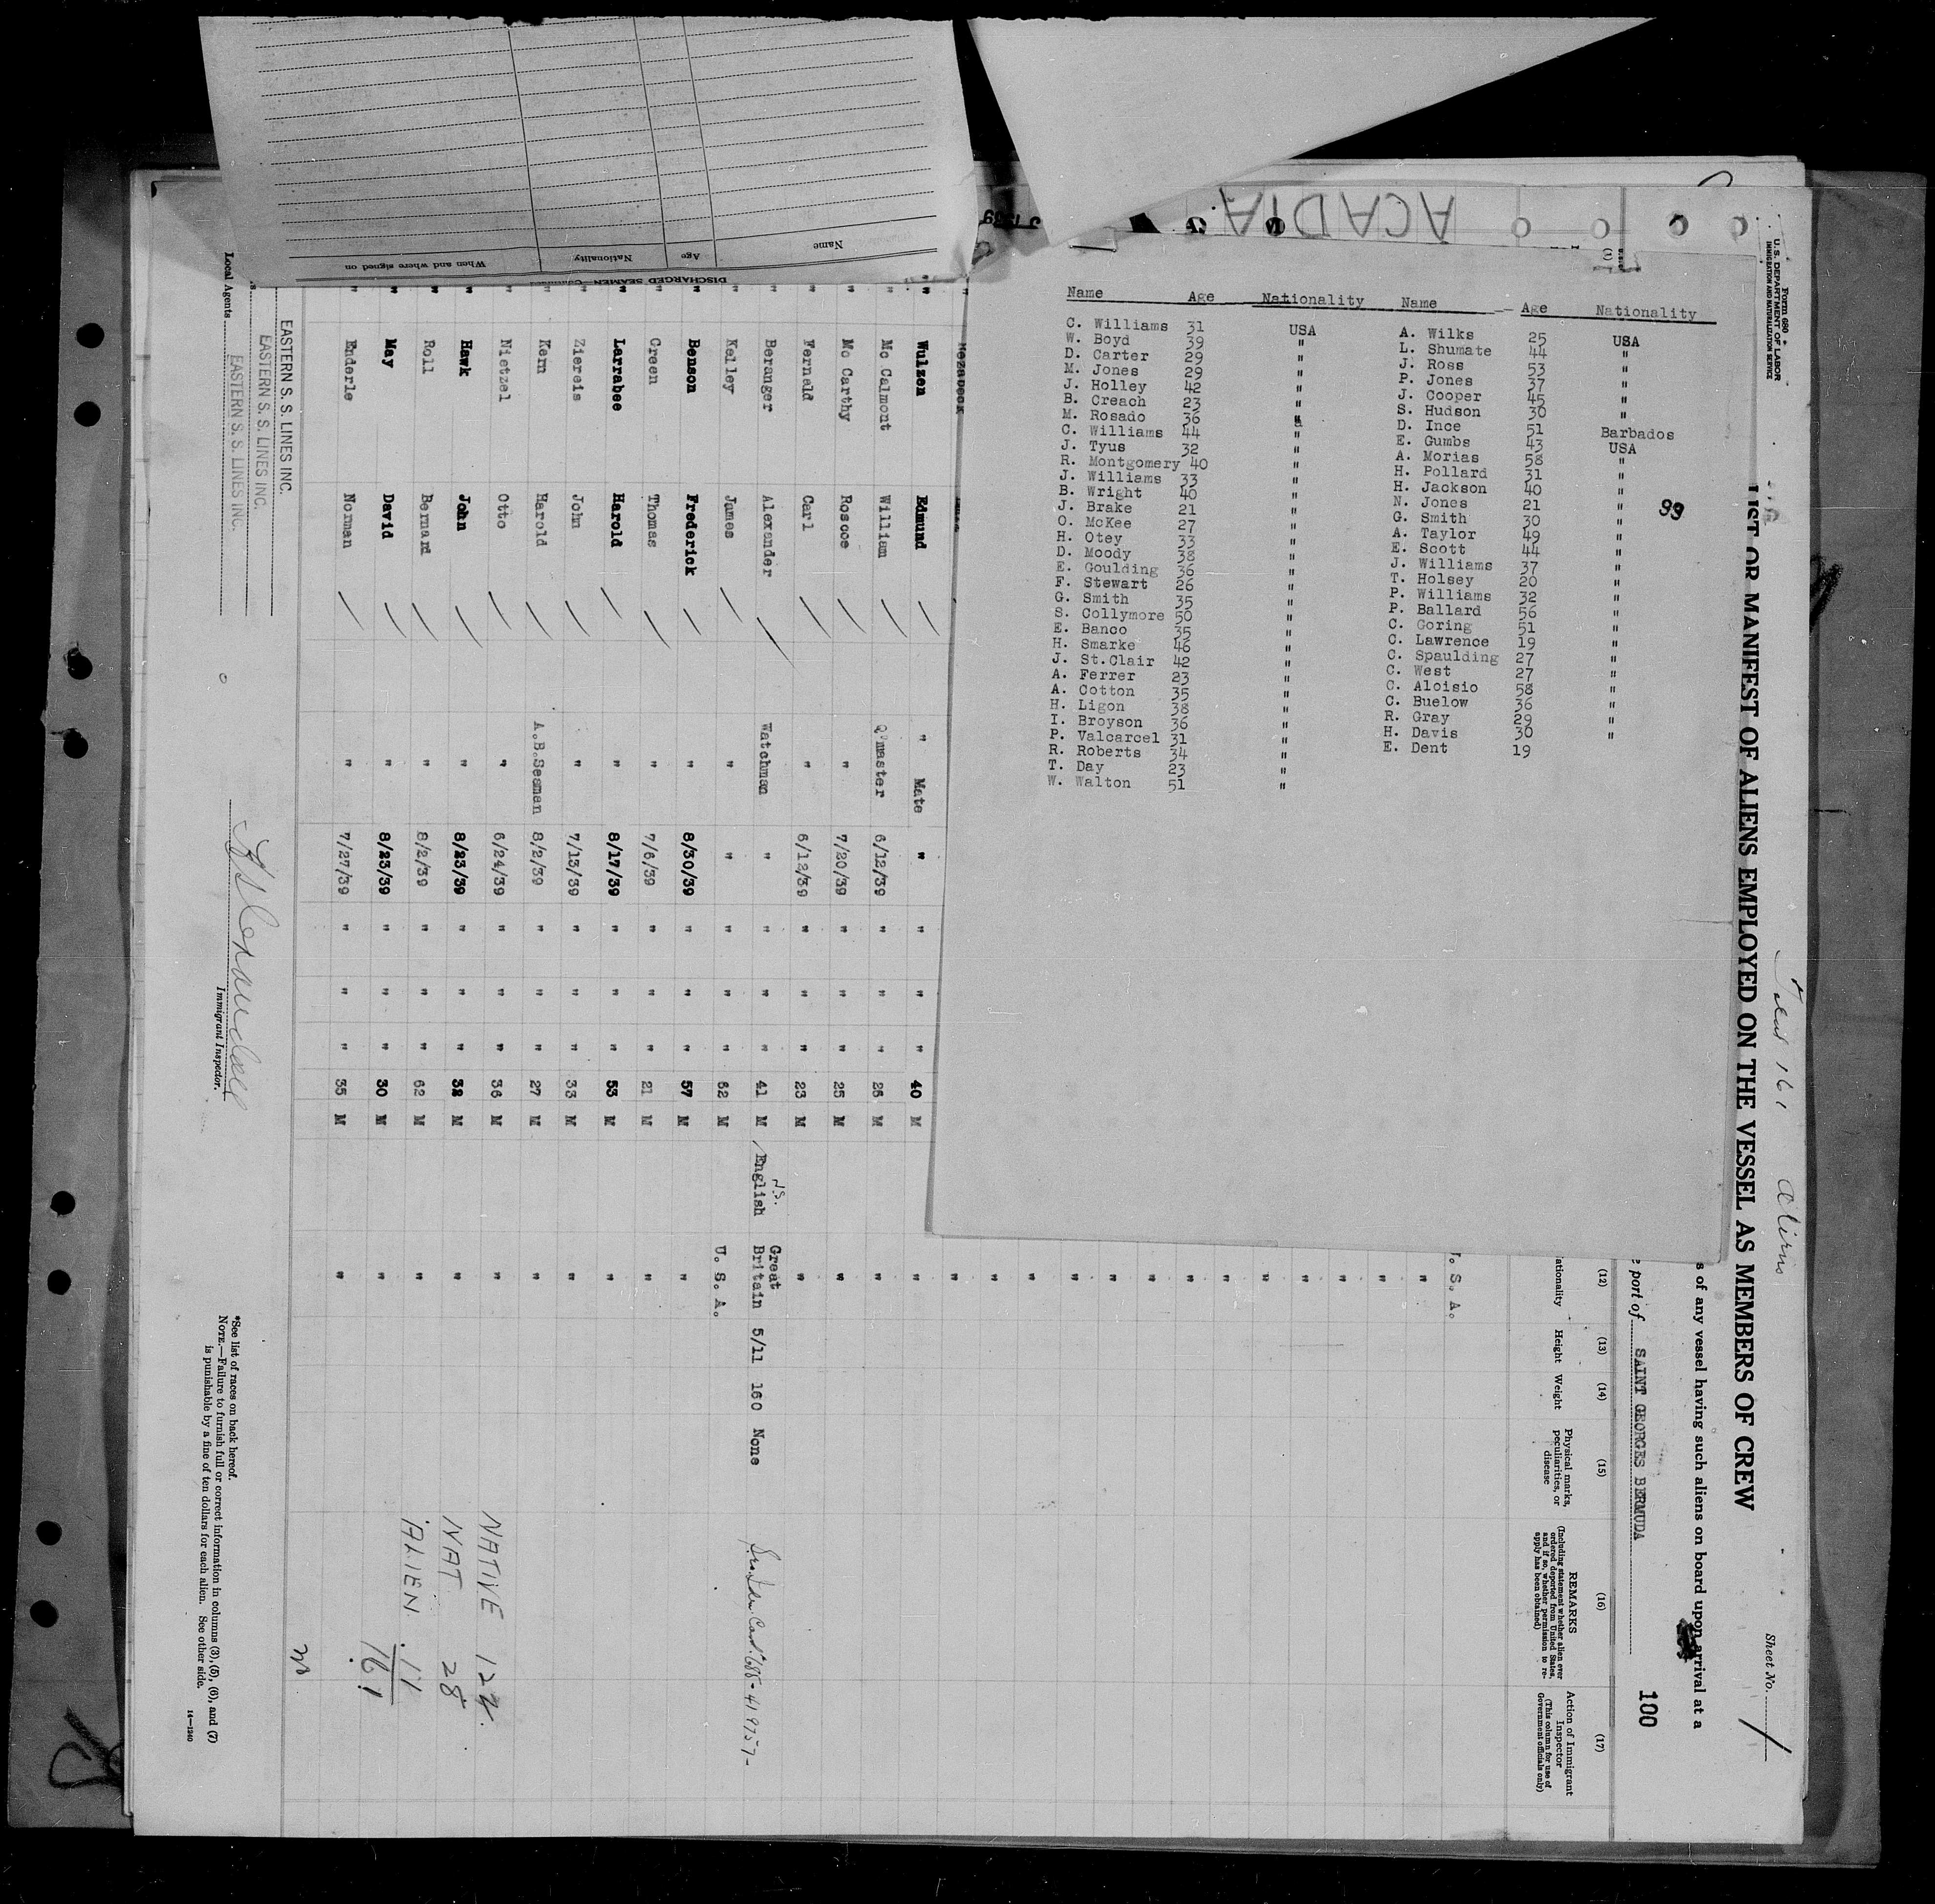 ACADIA
Form 680
U. S. DEPARTMENT OF LABOR
IMMIGRATION AND NATURALIZATION SERVICE
Sheet No. 1
Total 161 aliens
LIST OR MANIFEST OF ALIENS EMPLOYED ON THE VESSEL AS MEMBERS OF CREW
s of any vessel having such aliens on board upon arrival at a
port of SAINT GEORGES BERMUDA
100
99
Name Age Nationality Name Age Nationality
C. Williams 31 USA A. Wilks 25 USA
W. Boyd 39 " L. Shumate 44 "
D. Carter 29 " J. Ross 53 "
M. Jones 29 " P. Jones 37 "
J. Holley 42 " J. Cooper 45 "
B. Creach 23 " S. Hudson 30 "
M. Rosado 36 " D. Ince 51 Barbados
C. Williams 44 " E. Gumbs 43 USA
J. Tyus 32 " A. Morias 58 "
R. Montgomery 40 " H. Pollard 31 "
J. Williams 33 " H. Jackson 40 "
B. Wright 40 " N. Jones 21 "
J. Brake 21 " G. Smith 30 "
O. McKee 27 " A. Taylor 49 "
H. Otey 33 " E. Scott 44 "
D. Moody 38 " J. Williams 37 "
E. Goulding 36 " T. Holsey 20 "
F. Stewart 26 " P. Williams 32 "
G. Smith 35 " P. Ballard 56 "
S. Collymore 50 " C. Goring 51 "
E. Banco 35 " C. Lawrence 19 "
H. Smarke 46 " C. Spaulding 27 "
J. St.Clair 42 " C. West 27 "
A. Ferrer 23 " C. Aloisio 58 "
A. Cotton 35 " C. Buelow 36 "
H. Ligon 38 " R. Gray 29 "
I. Broyson 36 " H. Davis 30 "
P. Valcarcel 31 " E. Dent 19
R. Roberts 34 "
T. Day 23 "
W. Walton 51 "
(12) (13) (14) (15) (16) (17)
ationality Height Weight Physical marks, peculiarities, or disease REMARKS (Including statement whether alien ever ordered deported from United States, and if so, whether permission to reapply has been obtained) Action of Immigrant Inspector (This column for use of Government officials only)
. S. A.
" Wulzen Edmund " Mate " " " " 40 M "
" Mc Calmont William Q'master 6/12/39 " " " 26 M "
" Mc Carthy Roscoe " 7/20/39 " " " 25 M "
" Fernald Carl " 6/12/39 " " " 23 M "
Beranger Alexander Watchman " " " " 41 M N.S. English Great Britain 5/11 160 None
" Kelley James " " " " " 62 M U. S. A.
" Benson Frederick " 8/30/39 " " " 57 M "
" Green Thomas " 7/6/39 " " " 21 M "
" Larrabee Harold " 8/17/39 " " " 53 M "
" Ziereis John " 7/13/39 " " " 33 M "
" Kern Harold A.B.Seaman 8/2/39 " " " 27 M "
" Nietzel Otto " 6/24/39 " " " 36 M "
" Hawk John " 8/23/39 " " " 32 M "
" Roll Bernard " 8/2/39 " " " 62 M "
" May David " 8/23/39 " " " 30 M "
" Enderle Norman " 7/27/39 " " " 35 M "
NATIVE 122
NAT 28
ALIEN 11
161
EASTERN S. S. LINES INC.
EASTERN S. S. LINES INC.
Local Agents EASTERN S. S. LINES INC.
Immigrant Inspector.
*See list of races on back hereof.
NOTE.—Failure to furnish full or correct information in columns (3), (5), (6), and (7)
is punishable by a fine of ten dollars for each alien. See other side.
14—1240
DISCHARGED SEAMEN—Continued
Name Age Nationality When and where signed on